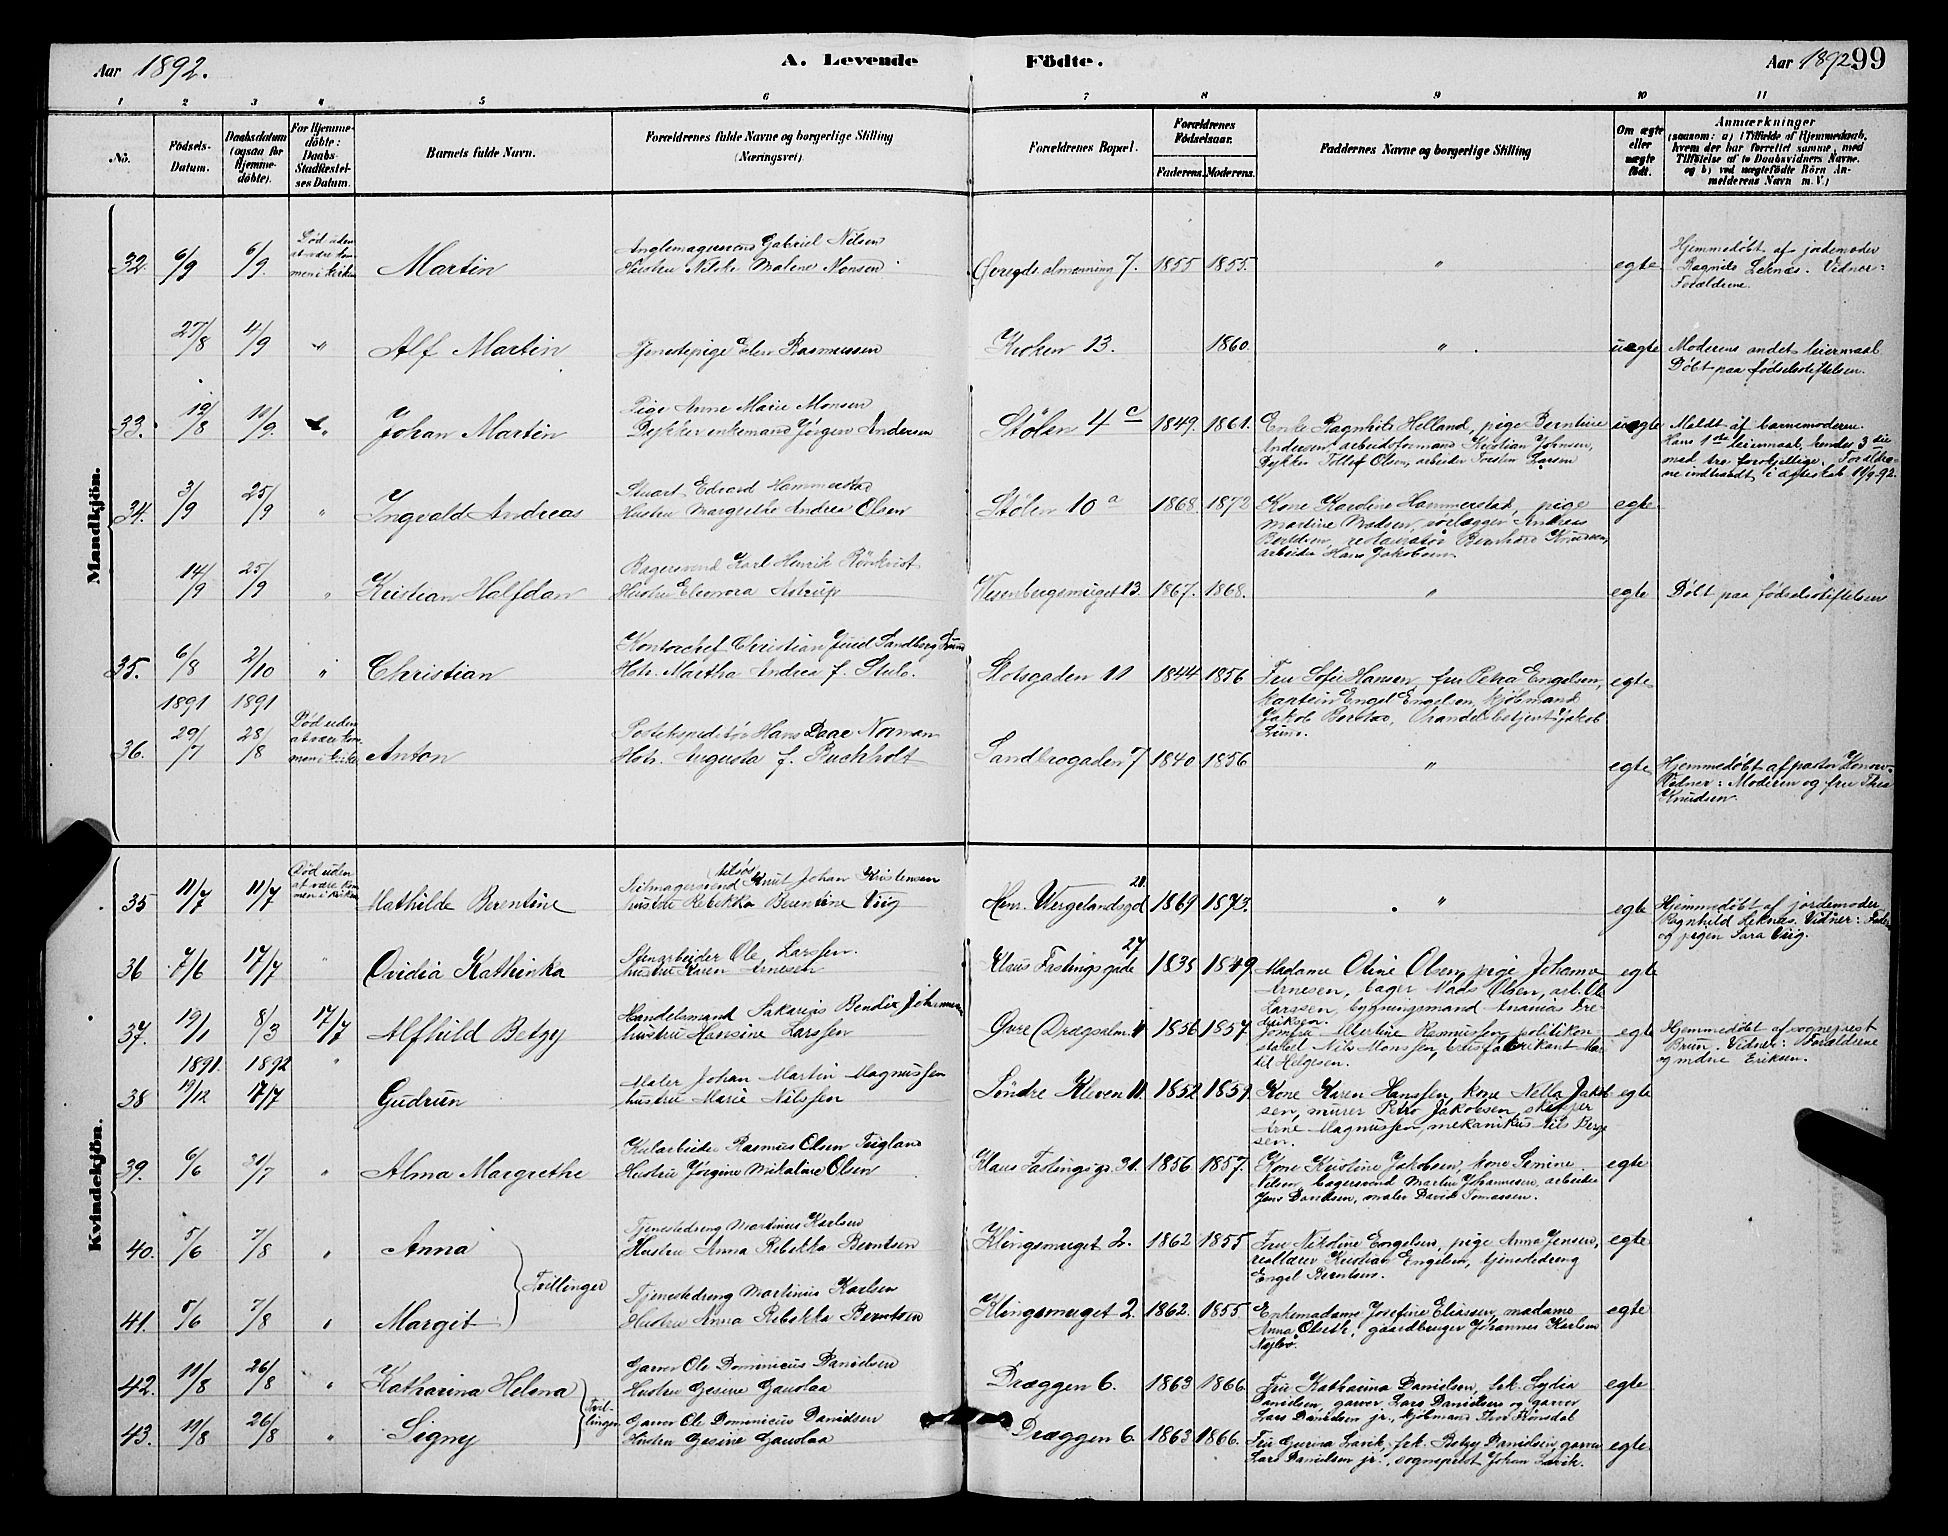 Aar 1892.
A. Levende Födte.
Aar 1892 99
1 2 3 4 5 6 7 8 9 10 11
No.
Födsels-Datum.
Daabsdatum (ogsaa for Hjemmedöbte).
For Hjemmedöbte: Daabs-Stadfæstelses Datum.
Barnets fulde Navn.
Forældrenes fulde Navne og borgerlige Stilling (Næringsvei)
Forældrenes Bopæl.
Forældrenes Födselsaar.
Faderens. Moderens.
Faddernes Navne og borgerlige Stilling
Om ægte eller uægte födt.
Anmærkninger (saasom: a) i Tilfælde af Hjemmedaab, hvem der har forrettet samme, med Tilföielse af to Daabsvidners Navne. og b) ved uægtefödte Börn Anmelderens Navn m. V.)
Mandkjön.
32. 6/9 6/9. Død uden at være kommen i kirken Martin
Gabriel Nilsen
Hustru Malene Monsen
Øvregds almenning 7. 1855 1855. " egte
Hjemmedøbt af jordemoder
Ragnild Leknes. Vidner:
Forældrene.
27/8 4/9 " Alf Martin
Tjenestepige Elen Rasmussen
Kroken 13. 1860. " uegte
Moderens andet leiermaal
Døbt paa fødselsstiftelsen.
33. 12/8 11/9. " Johan Martin
Pige Anne Marie Monsen
Dykker enkemand Jørgen Andersen
Stølen 4 c 1849. 1861.
Enke Ragnhild Helland, pige Berntine
Andersen, arbeidsformand Kristian Johnsen,
Dykker Tollef Olsen, arbeider Torsten Larsen
uegte
Meldt af barnemoderen.
Hans 1ste leiermaal, hendes 3die
med tre forskjellige. Forældrene
indtraadt i ægteskab 11/9 92.
34. 3/9 25/9 " Ingvald Andreas
Stuart Edvard Hammerstad
Hustru Margrethe Andrea Olsen
Stølen 10 a 1868 1872
Kone Karoline Hammerstad, pige
Martine Madsen, Andreas
Berntsen, restauratør Bernhard Knudsen,
arbeider Hans Jakobsen.
egte
14/9 25/9 " Kristian Halfdan
Bagersvend Karl Henrik Rönkvist
Hustru Eleonora Astrup
Vesenbergsmuget 13. 1867. 1868. " egte
Døbt paa fødselsstiftelsen
35. 6/8 2/10 " Christian
Kontorchef Christian Juul Sandberg Lund
Hstr. Martha Andrea f. Stub.
Slotsgaden 11 1844 1856
Fru Sofie Hansen, fru Petra Engelsen,
kaptein Engel Engelsen, kjøbmand
Jakob Berstad, handelsbetjent Jakob
Lund.
egte
1891 1891
36. 29/7 28/8 Død uden at være kommen i kirke Anton
Postekspeditør Hans Daae Norman
Hstr. Augusta f. Buchholt
Sandbrogaden 7 1840 1856 " egte
Hjemmedøbt af pastor Konow.
Vidner: Moderen og fru Thea
Knudsen.
Kvindekjön.
35 11/7 11/7 Død uden at være kommen i kirken Mathilde Berentine
Seilmagersvend Knut Johan Kristensen
hustru Rebekka Berentine Viig
Hen. Wergelandsgd 21. 1869 1873. " egte
Hjemmedøbt af jordemoder
Ragnhild Leknes. Vidner: Fader
og pigen Sara Viig.
36 7/6 17/7 " Ovidia Kathinka
Stenarbeider Ole Larssen.
hustru Karen Arnesen
Klaus Fastingsgade 27 1838 1849
Madame Oline Olsen, pige Johanna
Arnesen, bager Mads Olsen, arb. Ole
Larssen, bygningsmand Ananias Fredriksen.
egte
37. 19/1 8/3 17/7 Alfhild Betzy
Handelsmand Sakarias Bendix Johannessen
hustru Hansine Larssen
Øvre Drægsalm. 4 1856 1857
Jomfru Albertine Rasmussen, politikonstabel
Nils Monssen, brusfabrikant Martin
Helgesen.
egte
Hjemmedøbt af sogneprest
Brun. Vidner: Forældrene
og mdme Eriksen.
1891. 1892 "
38 19/12 17/7 Gudrun
Maler Johan Martin Magnussen
hustru Marie Nilssen
Søndre Kleven 11. 1852 1859.
Kone Karen Hanssen, kone Nella Jakobsen,
murer Petro Jakobsen, skipper
Arne Magnussen, mekanikus Nils Bergesen.
egte
39. 6/6 31/7 " Alma Margrethe
Kularbeider Rasmus Olsen Teigland
Hustru Jørgine Mikaline Olsen
Klaus Fastingsgd. 31. 1856 1857.
Kone Kristine Jakobsen, kone Semine
Nilsen, bagersvend Martin Johannesen, arbeider
Jens Davidsen, maler David Tomassen.
egte
40. 5/6 7/8 " Anna
Tjenestedreng Martinius Karlsen
Hustru Anna Rebekka Berntsen
Klingsmuget 2. 1862 1855
Fru Nikoline Engelsen, pige Anna Jensen,
reallærer Kristian Engelsen, tjenestedreng
Engel Berntsen.
egte
Tvillinger
41. 5/6 7/8 " Margit
Tjenestedreng Martinius Karlsen
Hustru Anna Rebekka Berntsen
Klingsmuget 2. 1862. 1855
Enkemadame Josefine Eliassen, madame
Anna Olseth, gaardbruger Johannes Karlsen
egte
42. 11/8 26/8 " Katharina Helena
Garver Ole Dominicus Danielsen
Hustru Gesine Gausdaa
Dræggen 6. 1863 1866.
Fru Katharina Danielsen, frk. Lydia
Danielsen, garver Lars Danielsen og garver
Lars Danielsen jr., kjøbmand
egte
Tvillinger
43. 11/8 26/8 " Signy
Garver Ole Dominicus Danielsen
Hustru Gesine Gausdaa
Dræggen 6. 1863 1866.
Fru Gurina Lavik, frk. Betzy Danielsen, garver
Lars Danielsen jr., sogneprest Johan Lavik.
egte